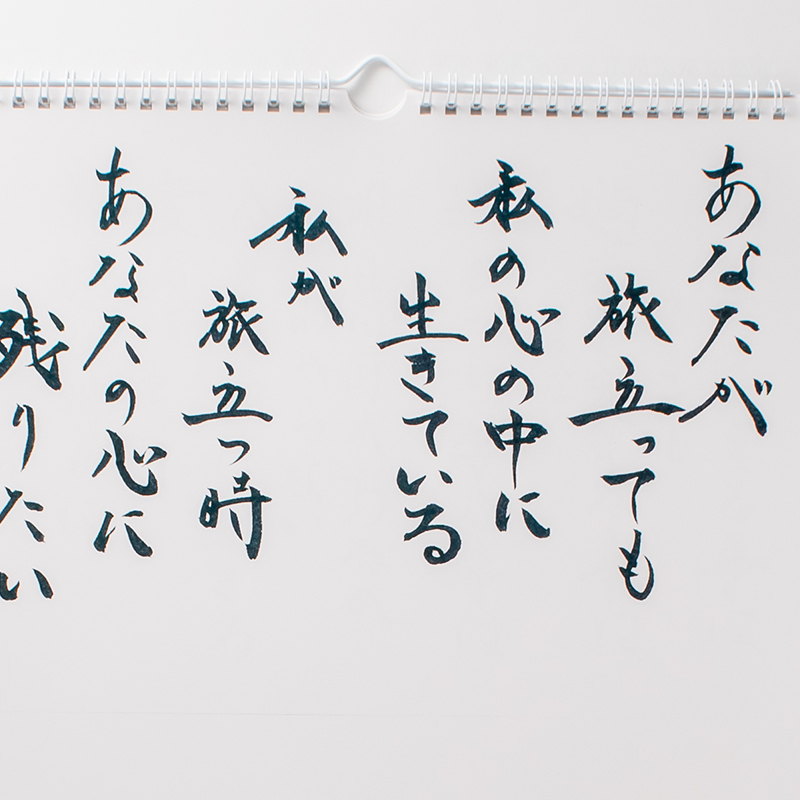 あなたが
旅立っても
私の心の中に
生きている
私が
旅立つ時
あなたの心に
残りたい